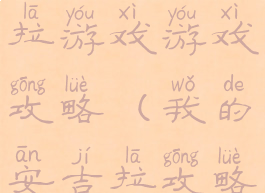 lā yóu xì yóu xì
拉游戏游戏
gōng lüè wǒ de
攻略（我的
ān jí lā gōng lüè
安吉拉攻略